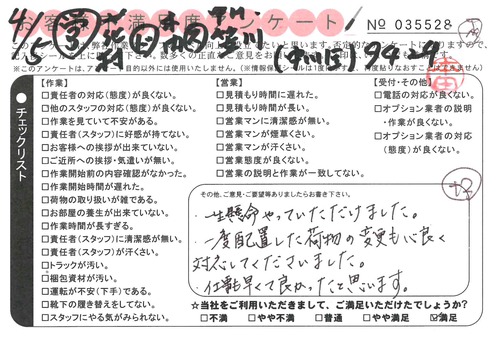 お客様満足度アンケート
No 035528
4/5
94.24
チェックリスト
【作業】
□責任者の対応(態度)が良くない。
□他のスタッフの対応(態度)が良くない。
□作業を見ていて不安がある。
□責任者(スタッフ)に好感が持てない。
□お客様への挨拶が出来ていない。
□ご近所への挨拶・気遣いが無い。
□作業開始前の内容確認がなかった。
□作業開始時間が遅れた。
□荷物の取り扱いが雑である。
□お部屋の養生が出来ていない。
□作業時間が長すぎる。
□責任者(スタッフ)に清潔感が無い。
□責任者(スタッフ)が汗くさい。
□トラックが汚い。
□梱包資材が汚い。
□運転が不安(下手)である。
□靴下の履き替えをしてない。
□スタッフにやる気がみられない。
【営業】
□見積もり時間に遅れた。
□見積もり時間が長い。
□営業マンに清潔感が無い。
□営業マンが煙草くさい。
□営業マンが汗くさい。
□営業態度が良くない。
□営業の説明と作業が一致してない。
【受付・その他】
□電話の対応が良くない。
□オプション業者の説明
・作業が良くない。
□オプション業者の対応
(態度)が良くない。
その他、ご意見・ご要望等ありましたらお書き下さい。
・一生懸命やっていただけました。
・一度配置した荷物の変更も心良く
対応してくださいました。
・仕事も早くて良かったと思います。
☆当社をご利用いただきまして、ご満足いただけたでしょうか？
□不満 □やや不満 □普通 □やや満足 ☑満足